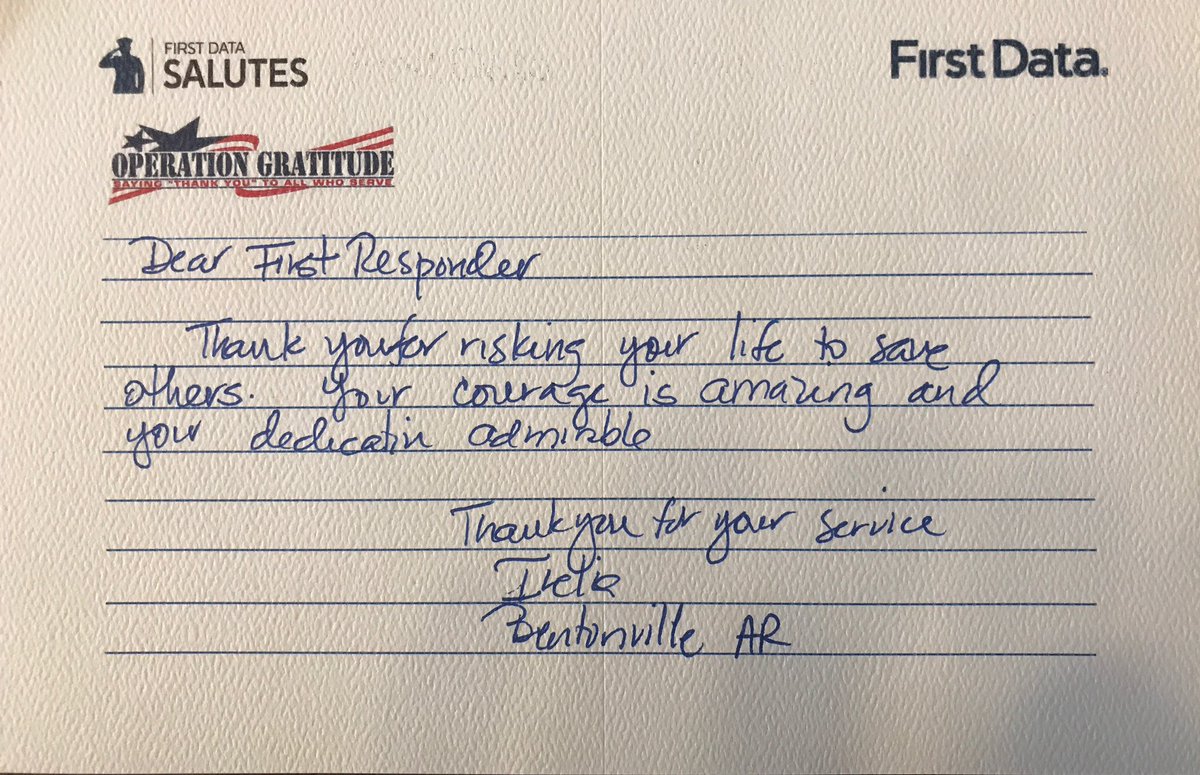 FIRST DATA
SALUTES
First Data.
OPERATION GRATITUDE
SAYING "THANK YOU" TO ALL WHO SERVE
Dear First Responder
Thank you for risking your life to save
others. Your courage is amazing and
your dedicatin admirable
Thank you for your service
Bentonville AR